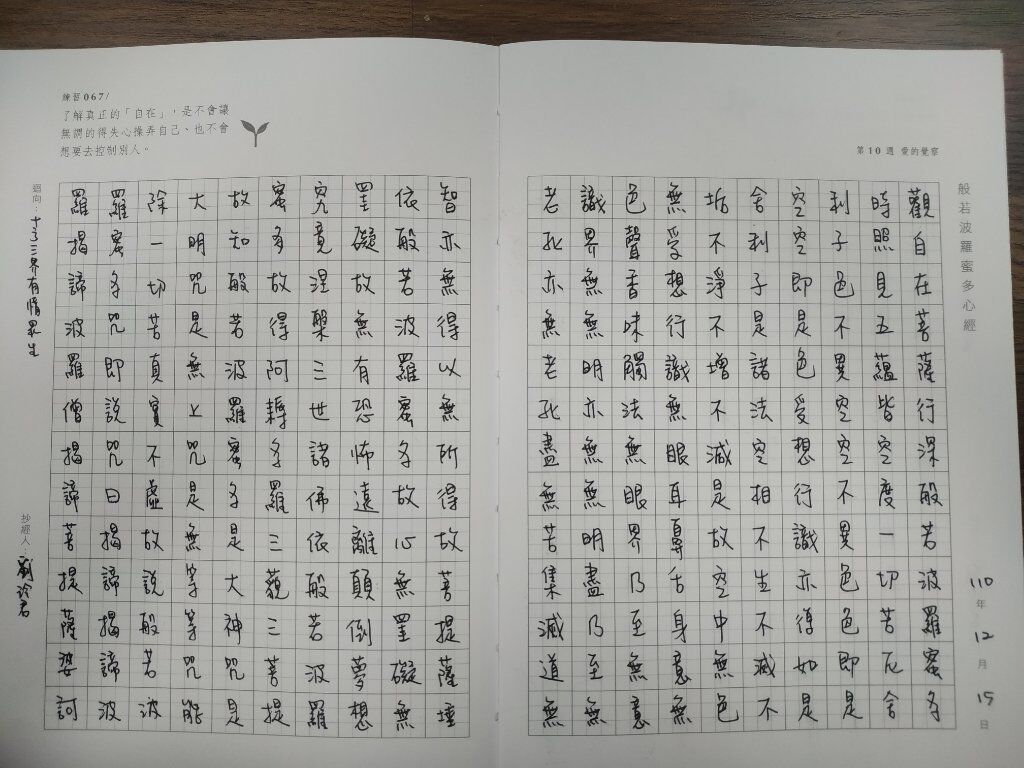 第10週 愛的覺察
般若波羅蜜多心經
觀自在菩薩行深般若波羅蜜多
時照見五蘊皆空度一切苦厄舍
利子色不異空空不異色色即是
空空即是色受想行識亦復如是
舍利子是諸法空相不生不滅不
垢不淨不增不減是故空中無色
無受想行識無眼耳鼻舌身意無
色聲香味觸法無眼界乃至無意
識界無無明亦無無明盡乃至無
老死亦無老死盡無苦集滅道無
110年12月15日
練習067/
了解真正的「自在」,是不會讓
無謂的得失心操弄自己、也不會
想要去控制別人。
智亦無得以無所得故菩提薩埵
依般若波羅蜜多故心無罣礙無
罣礙故無有恐怖遠離顛倒夢想
究竟涅槃三世諸佛依般若波羅
蜜多故得阿耨多羅三藐三菩提
故知般若波羅蜜多是大神咒是
大明咒是無上咒是無等等咒能
除一切苦真實不虛故說般若波
羅蜜多咒即說咒曰揭諦揭諦波
羅揭諦波羅僧揭諦菩提薩婆訶
迴向:十方三界有情眾生
抄經人